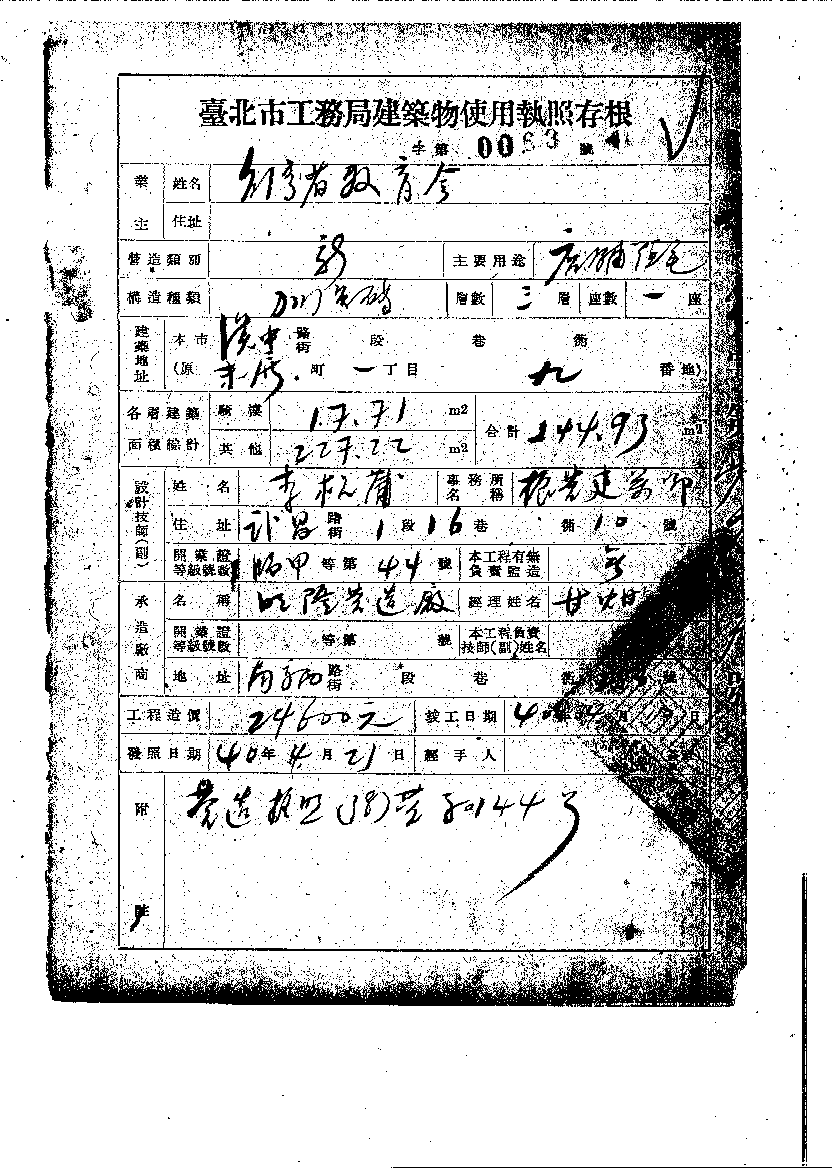 臺北市工務局建築物使用執照存根
字第 0083 號
業主 姓名 台灣省教育會
住址
營造類別 新 主要用途 店舖住宅
構造種類 加強磚 層數 三 層 座數 一 座
建築地址 本市 漢中 路街 段 巷 衖
(原 末廣 町 一 丁目 九 番地)
各層建築面積總計 騎樓 17.71 m2 合計 244.93 m2
其他 227.22 m2
設計技師(副) 姓名 李 事務所名稱 建築師
住址 武昌 路街 1 段 16 巷 衖 10 號
開業證等級號數 甲 等第 44 號 本工程有無負責監造
承造廠商 名稱 隆營造廠 經理姓名 甘
開業證等級號數 等第 號 本工程負責技師(副)姓名
地址 南 路街 段 巷 衖 號
工程造價 24600元 竣工日期 40 年 4 月 日
發照日期 40 年 4 月 21 日 經手人
附註 營造執照(39)營 144号